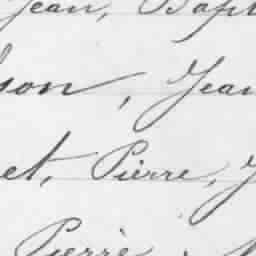 Jean, Bapt
son, Jean
et, Pierre, J
Pierrè,